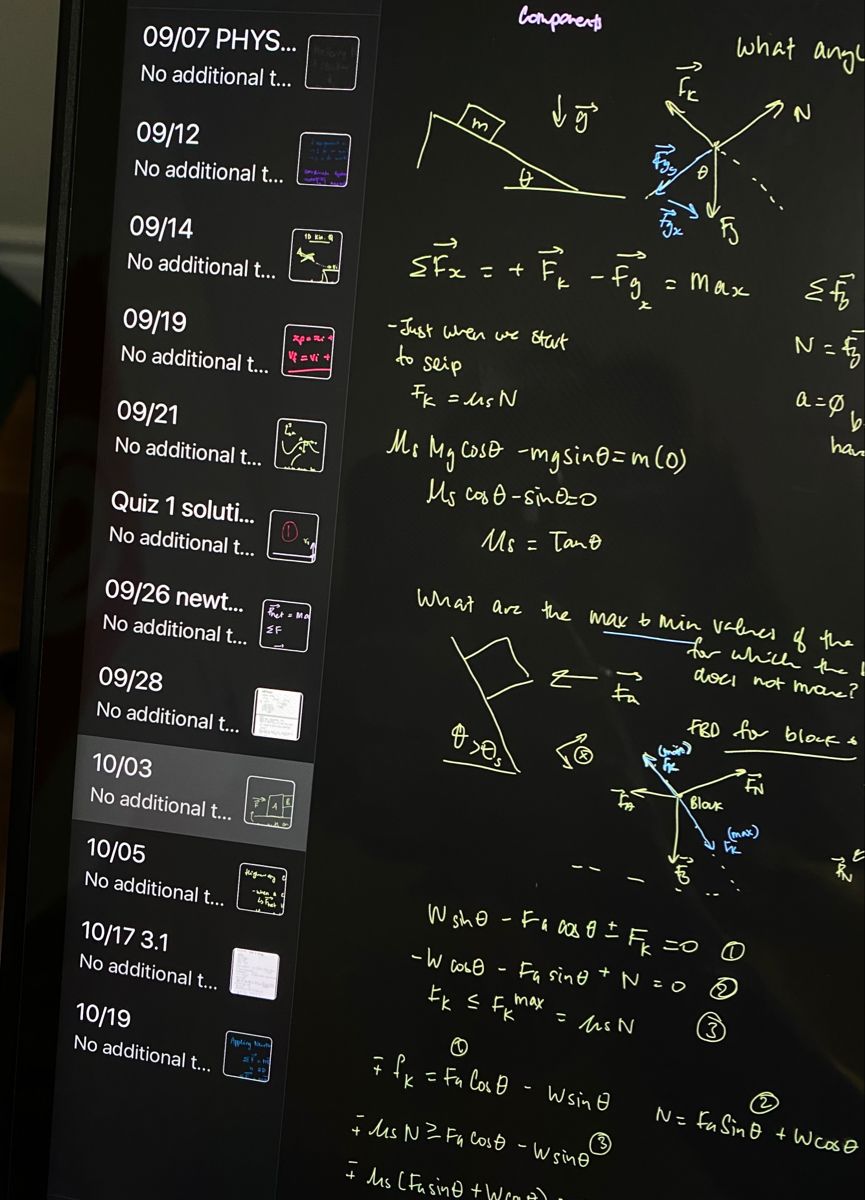 09/07 PHYS...
No additional t...
09/12
No additional t...
09/14
No additional t...
09/19
No additional t...
09/21
No additional t...
Quiz 1 soluti...
No additional t...
09/26 newt...
No additional t...
09/28
No additional t...
10/03
No additional t...
10/05
No additional t...
10/17 3.1
No additional t...
10/19
No additional t...
Components
What angl
m
↓ g⃗
θ
F⃗k
N
F⃗gy
θ
F⃗gx
F⃗g
ΣF⃗x = + F⃗k - F⃗gx = max
-Just when we start
to slip
Fk = μsN
N =
a=∅
hav
μs Mg cosθ - mgsinθ = m(0)
μs cosθ - sinθ=0
μs = Tanθ
What are the max & min values of the
for which the
does not move?
← F⃗a
θ>θs
FBD for block
(min)
Fk
F⃗N
F⃗A
Block
(max)
Fk
F⃗g
F⃗N
Wsinθ - Fa cosθ ± Fk = 0 ①
-W cosθ - Fa sinθ + N = 0 ②
Fk ≤ Fk^max = μsN ③
①
∓ fk = Fa cosθ - Wsinθ
②
N = Fa Sinθ + Wcosθ
∓ μs N ≥ Fa cosθ - Wsinθ ③
∓ μs (Fa sinθ + Wcosθ)